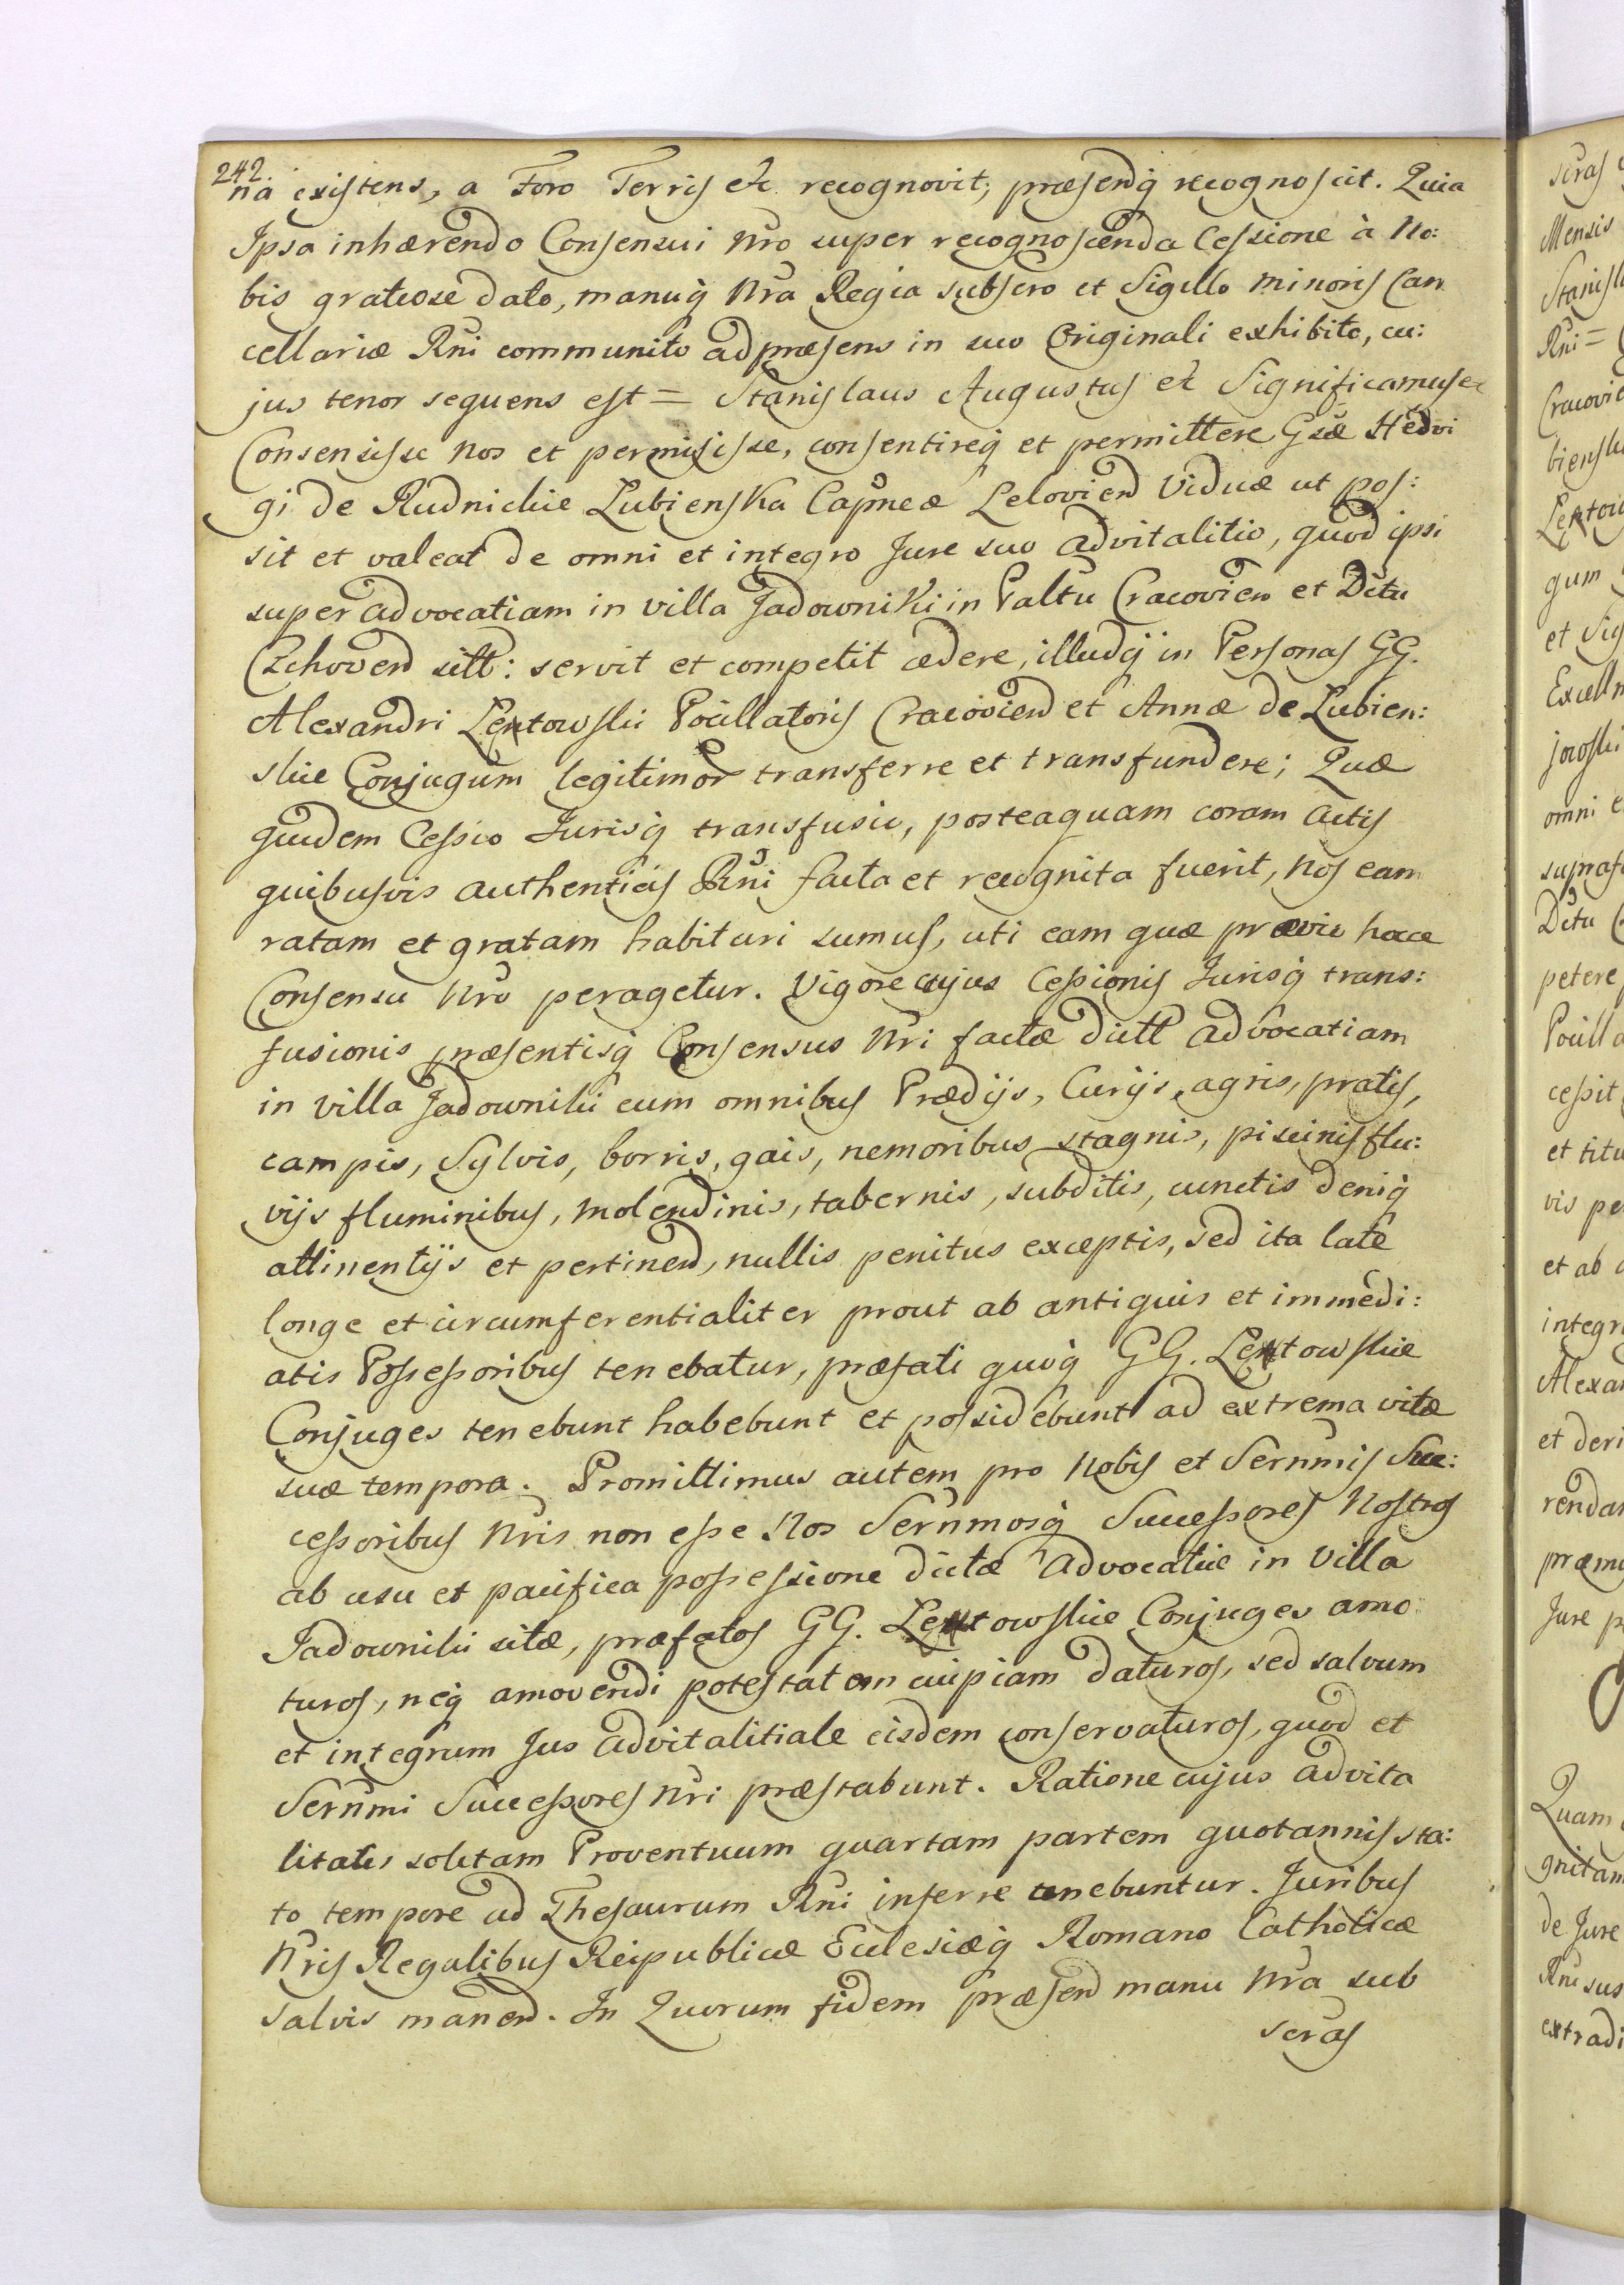 242.
na existens, a Foro Terris etc. recognovit, præsenq̃ recognoscit. Quia
Ipsa inhærendo Consensui Nro super recognoscenda Cessione à No:
bis gratiose dato, manuq̃ Nra Regia subscro et Sigillo minoris Can
cellariæ Rni communito ad præsens in suo Originali exhibito, cu:
jus tenor sequens est = Stanislaus Augustus etc Significamus etc
Consensisse Nos et permisisse, consentireq̃ et permittere Gsæ Hedvi
gi de Rudnickie Lubienska Capneæ Lelovien Viduæ ut pos:
sit et valeat de omni et integro Jure suo advitalitio, quod ipsi
super advocatiam in villa Jadowniki in Paltu Cracovien et Dctu
Czchovien sitt: servit et competit cædere, illudq̃ in Personas GG.
Alexandri Lentowskii Pocillatoris Cracovien et Annæ de Lubien:
skie Conjugum legitimor transferre et transfundere; Quæ
quidem Cessio Jurisq̃ transfusio, posteaquam coram Actis
quibusvis authenticis Rni facta et recognita fuerit, Nos eam
ratam et gratam habituri sumus, uti eam quæ prævio hocce
Consensu Nro peragetur. Vigore cujus Cessionis Jurisq̃ trans:
fusionis præsentisq̃ Consensus Nri factæ dictt advocatiam
in villa Jadownikii cum omnibus Prædijs, Curijs, agris, pratis,
campis, Sylvis, borris, gais, nemoribus stagnis, piscinis flu:
vijs fluminibus, molendinis, tabernis, subditis, cunctis deniq̃
attinentijs et pertinen, nullis penitus exceptis, sed ita latè
longe et circumferentialiter prout ab antiquis et immedi:
atis Possessoribus tenebatur, præfati quoq̃ GG. Lentowskie
Conjuges tenebunt habebunt et possidebunt ad extrema vitæ
suæ tempora. Promittimus autem pro Nobis et Sernmis Suc:
cessoribus Nris non esse Nos Sernmosq̃ Successores Nostros
ab usu et pacifica possessione dictæ Advocatiæ in Villa
Jadownikii sitæ, præfatos GG. Lentowskie Conjuges amo
turos, neq̃ amovendi potestatem cuipiam daturos, sed salvum
et integrum Jus advitalitiale eisdem conservaturos, quod et
Sernmi Successores Nri præstabunt. Ratione cujus advita
litatis solitam Proventuum quartam partem quotannis sta:
to tempore ad Thesaurum Rni inferre tenebuntur. Juribus
Nris Regalibus Reipublicæ Ecclesiæq̃ Romano Catholicæ
salvis manen. In Quorum fidem præsen manu Nra sub
scras
scras
Mensis
Stanisl
Rni =
Cracovie
biensk
Lentow
gum
et Sig
Excelln
jowski
omni e
supras
Dctu
petere
Pocilla
cessit
et titu
vis pe
et ab
integr
Alexan
et deri
rendam
præmi
Jure p
Quam
gnitam
de Jure
Rni sus
extradi